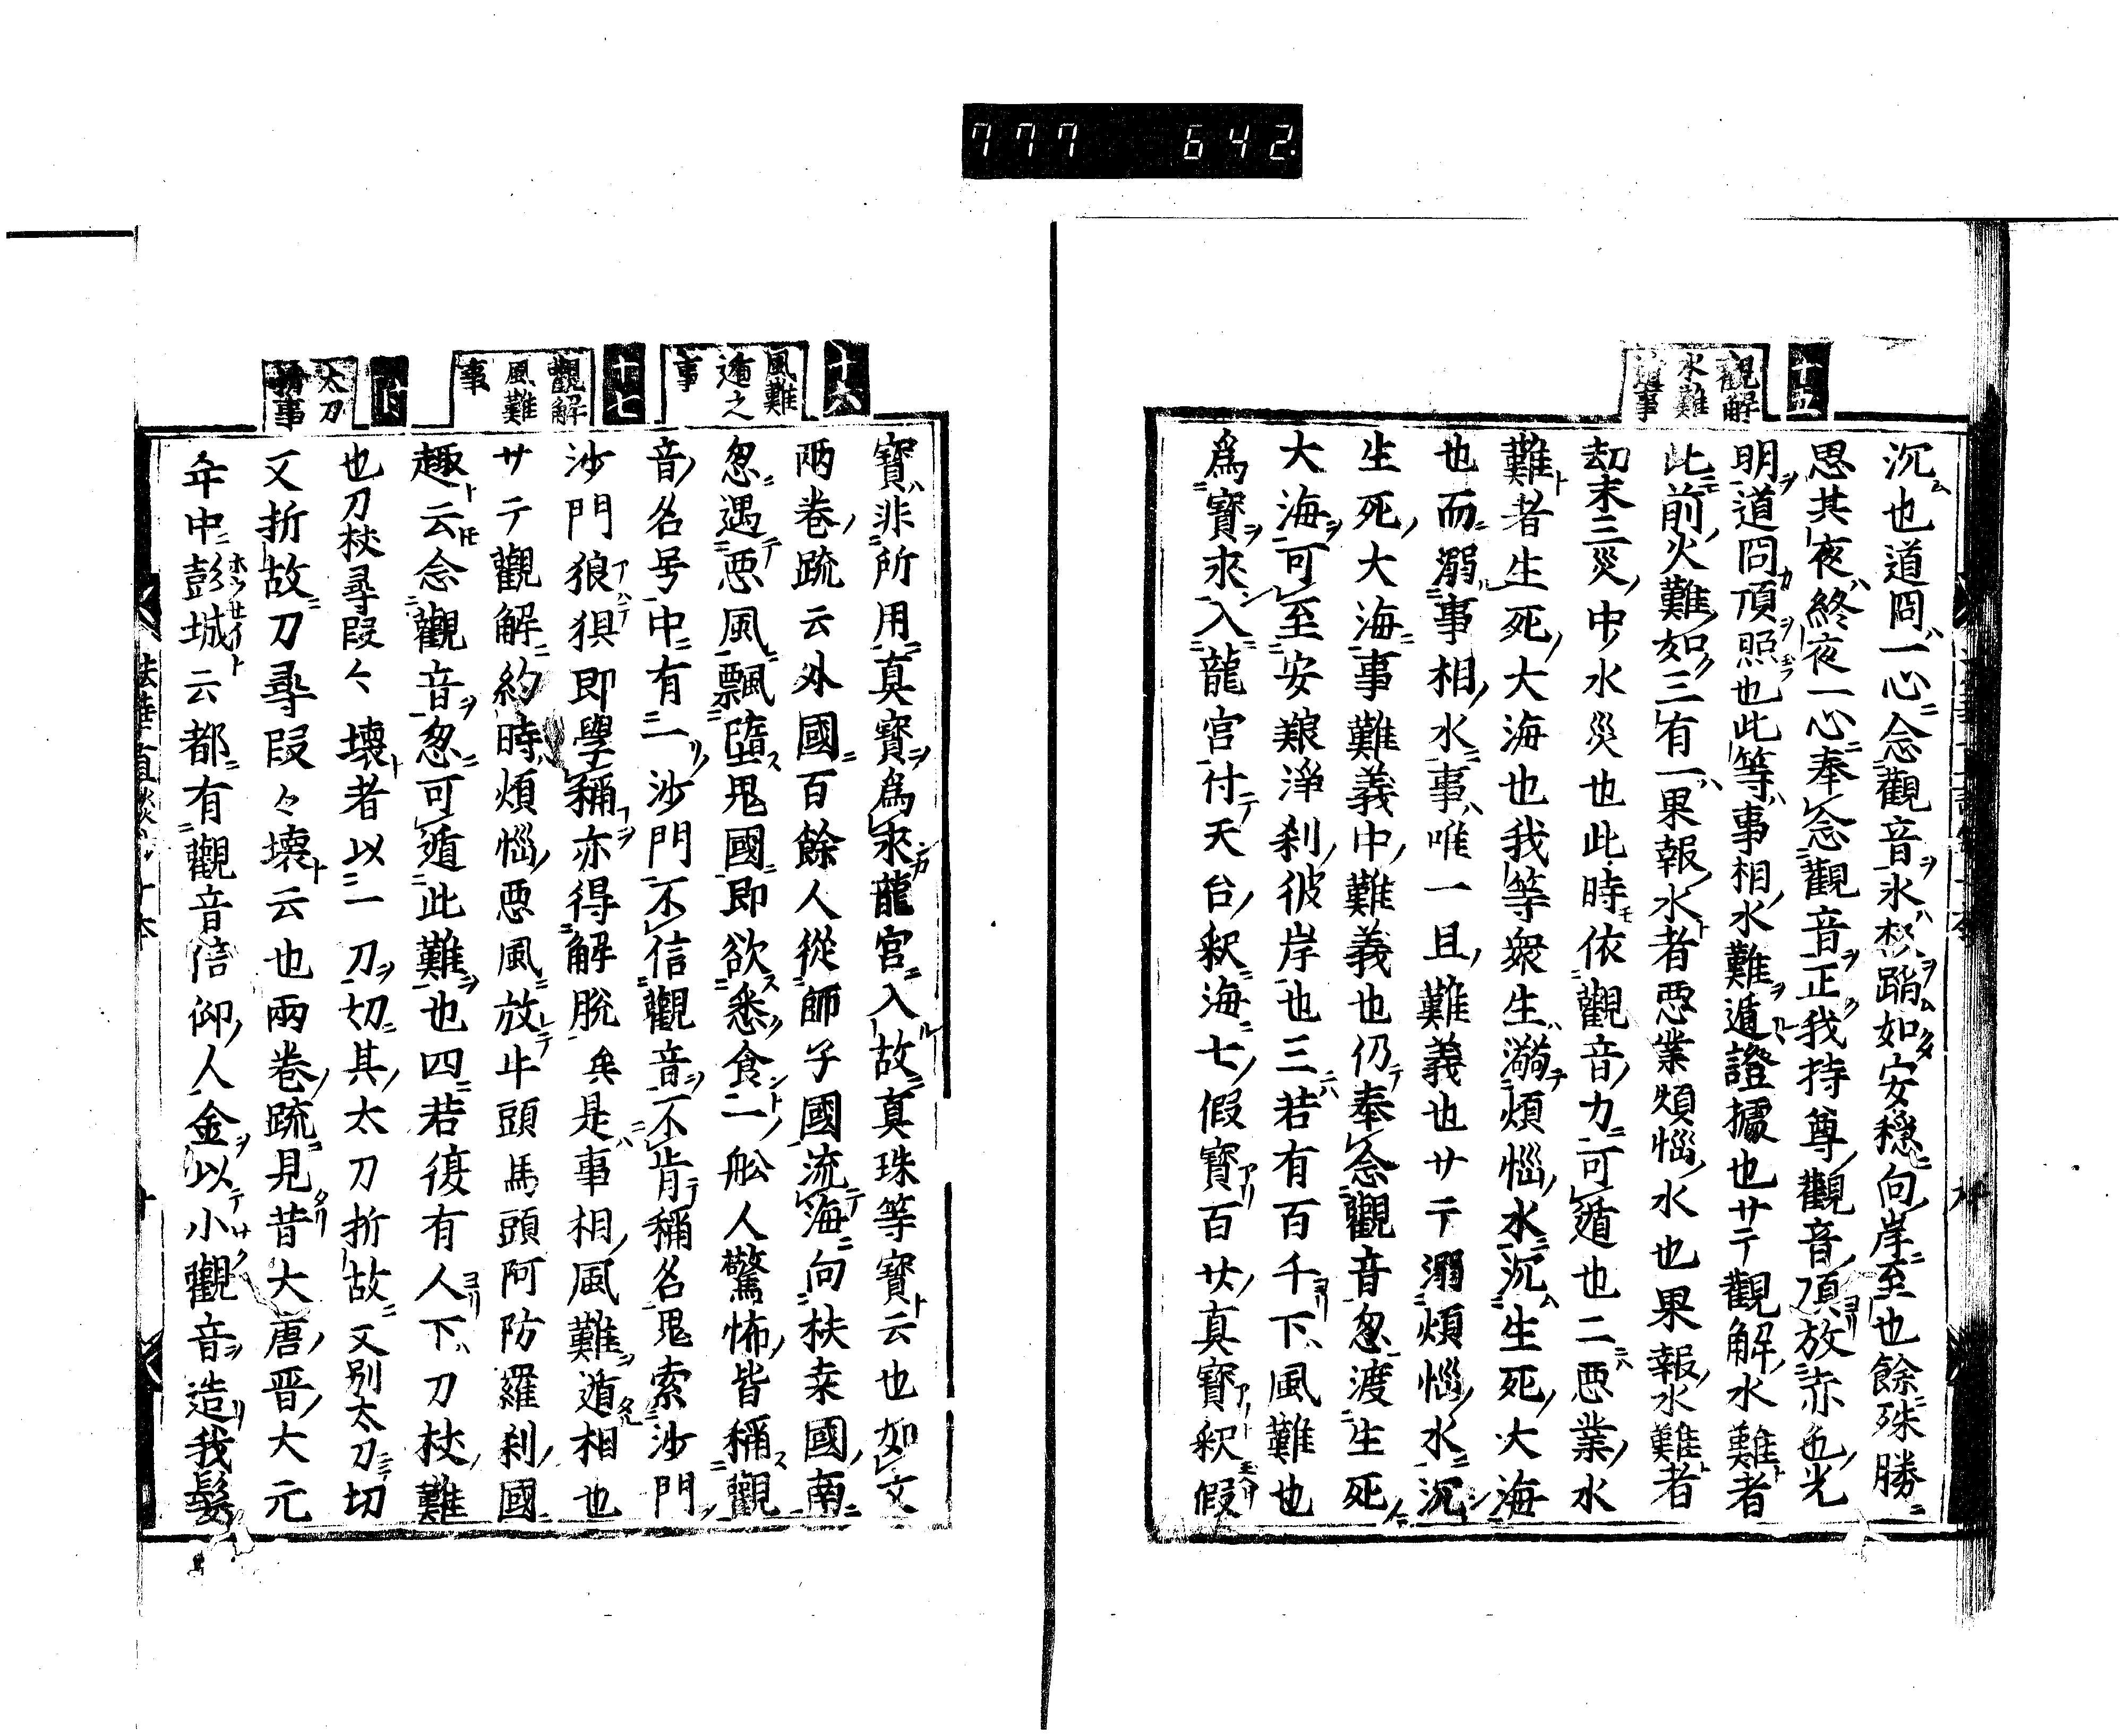 777 642.
十五
觀解
水難
事
沉也道冏一心念觀音氷松踏如安穩向岸至也餘殊勝
思其夜終夜一心奉念觀音正我持尊觀音頂放赤色光
明道冏頂照也此等事相水難難遁證據也サテ觀解水難者
此前火難如三有一果報水者惡業煩惱水也果報水難者
劫末三災中水災也此時依觀音力可遁也二惡業水
難者生死大海也我等衆生溺煩惱水沉生死大海
也而溺事相水事唯一旦難義也サテ溺煩惱水沉
生死大海事難義中難義也仍奉念觀音忽渡生死
大海可至安穩淨刹彼岸也三若有百千下風難也
爲寶求入龍宮付天台釈海七假寶百廿真寶釈假
十六
風難
遁之
事
十七
觀解
風難
事
太刀
事
寶非所用真寶爲求龍宮入故真珠等寶云也如文
兩卷疏云外國百餘人從師子國流海向扶桒國南
忽遇惡風飄墮鬼國即欲悉食二舩人驚怖皆稱觀
音名号中有一沙門不信觀音不肯稱名鬼索沙門
沙門狼狽即學稱亦得解脫矣是事相風難遁相也
サテ觀解約時煩惱惡風放牛頭馬頭阿防羅刹國
趣云念觀音忽可遁此難也四若復有人下刀杖難
也刀杖尋段々壊者以一刀切其太刀折故又別太刀切
又折故刀尋段々壊云也兩卷疏見昔大唐晋大元
年中彭城云都有觀音信仰人金以小觀音造我髮
法華直談 十本